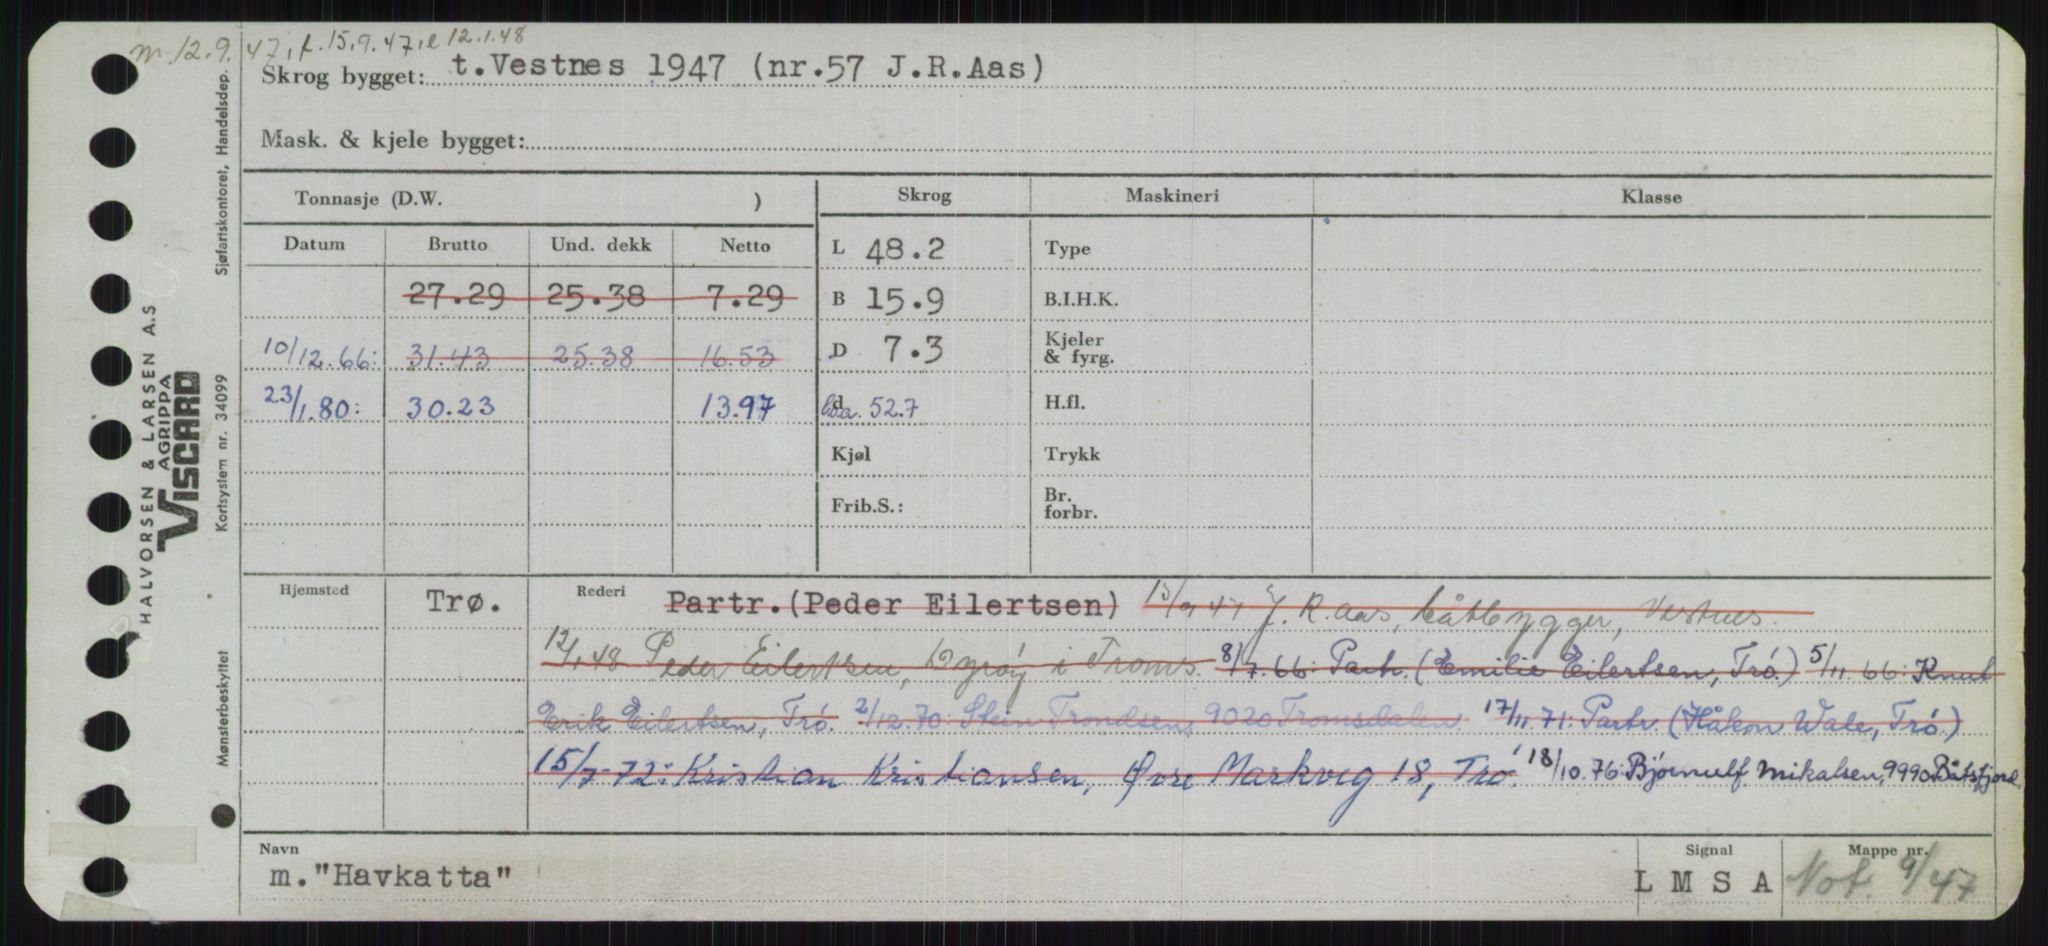 m 12.9.47, f. 15.9.47, e 12.1.48
Skrog bygget: t.Vestnes 1947 (nr.57 J.R.Aas)
Mask. & kjele bygget:
Tonnasje (D.W. )
Skrog
Maskineri
Klasse
Datum
Brutto
Und. dekk
Netto
27.29 25.38 7.29
10/12.66: 31.43 25.38 16.53
23/1.80: 30.23 13.97
L 48.2
B 15.9
D 7.3
d
l.o.a. 52.7
Kjøl
Frib.S.:
Type
B.I.H.K.
Kjeler
& fyrg.
H.fl.
Trykk
Br.
forbr.
Hjemsted
Trø.
Rederi
Partr.(Peder Eilertsen) 15/9 47 J. R. Aas, båtbygger, Vestnes.
12/1 48 Peder Eilertsen, Dyrøy i Troms. 8/7.66: Partr. (Emilie Eilertsen, Trø.) 5/11.66: Knut
Erik Eilertsen, Trø. 2/12.70: Stein Trondsen, 9020 Tromsdalen. 17/11.71: Partr. (Håkon Wale, Trø.)
15/7-72: Kristian Kristiansen, Øvre Markveg 18, Trø. 18/10.76: Bjørnulf Mikalsen, 9990 Båtsfjord.
Navn
m."Havkatta"
Signal
L M S A
Mappe nr.
Not. 9/47
HALVORSEN & LARSEN A.S
AGRIPPA
VISCARD
Sjøfartskontoret, Handelsdep.
Kortsystem nr. 34099
Mønsterbeskyttet